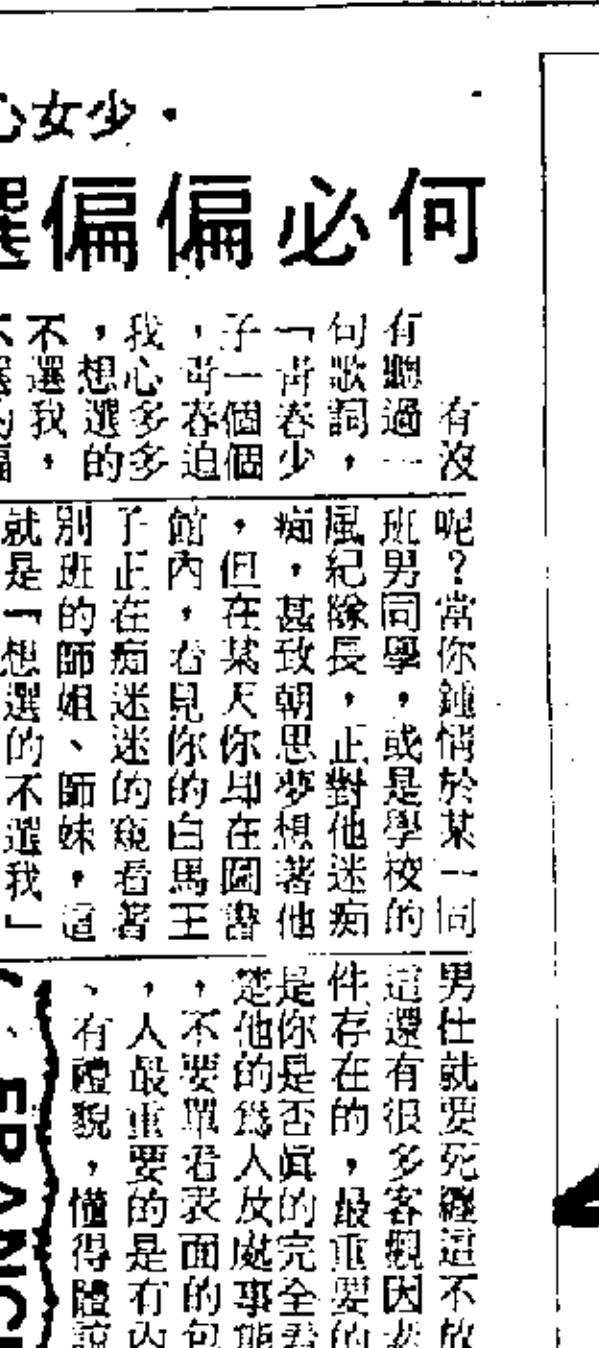 ・少女心
何必偏偏選
有沒
有聽過一
句歌詞，
「青春少
子一個個
，青春迫
我心多多
，想選的
不選我，
不選的偏
呢？當你鍾情於某一同
班男同學，或是學校的
風紀隊長，正對他迷痴
痴，甚致朝思夢想著他
，但在某天你却在圖書
館內，看見你的白馬王
子正在痴迷迷的窺看著
別班的師姐、師妹，這
就是「想選的不選我」
男仕就要死纏這不放
這還有很多客觀因素
件存在的，最重要的
是你是否眞的完全看
楚他的爲人及處事能
，不要單看表面的包
，人最重要的是有內
、有禮貌，懂得體諒
FRANC